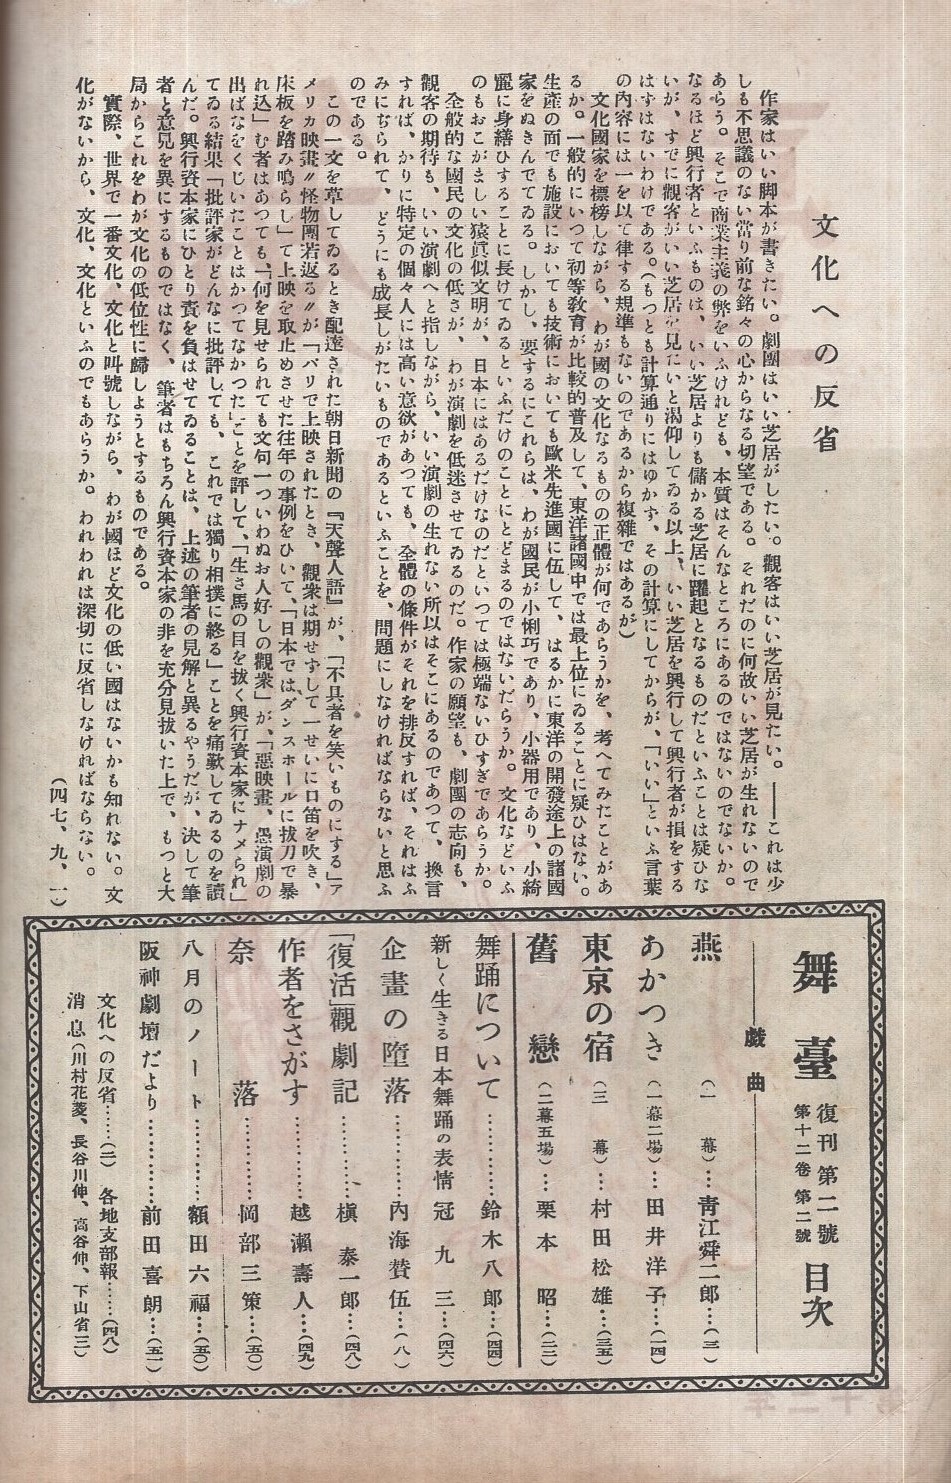 文化への反省
作家はいい脚本が書きたい。劇團はいい芝居がしたい。觀客はいい芝居が見たい。――これは少
しも不思議のない當り前な銘々の心からなる切望である。それだのに何故いい芝居が生れないので
あらう。そこで商業主義の弊をいふけれども、本質はそんなところにあるのではないのでないか。
なるほど興行者といふものは、いい芝居よりも儲かる芝居に躍起となるものだといふことは疑ひな
いが、すでに觀客がいい芝居を見たいと渴仰してゐる以上、いい芝居を興行して興行者が損をする
はずはないわけである。(もつとも計算通りにはゆかず、その計算にしてからが、「いい」といふ言葉
の內容には一を以て律する規準もないのであるから複雜ではあるが)
文化國家を標榜しながら、わが國の文化なるものの正體が何であらうかを、考へてみたことがあ
るか。一般的にいつて初等敎育が比較的普及して、東洋諸國中では最上位にゐることに疑ひはない。
生產の面でも施設においても技術においても歐米先進國に伍して、はるかに東洋の開發途上の諸國
家をぬきんでてゐる。しかし、要するにこれらは、わが國民が小悧巧であり、小器用であり、小綺
麗に身繕ひすることに長けてゐるといふだけのことにとどまるのではないだらうか。文化などいふ
のもおこがましい猿眞似文明が、日本にはあるだけなのだといつては極端ないひすぎであらうか。
全般的な國民の文化の低さが、わが演劇を低迷させてゐるのだ。作家の願望も、劇團の志向も、
觀客の期待も、いい演劇へと指しながら、いい演劇の生れない所以はそこにあるのであつて、換言
すれば、かりに特定の個々人には高い意欲があつても、全體の條件がそれを排反すれば、それはふ
みにぢられて、どうにも成長しがたいものであるといふことを、問題にしなければならないと思ふ
のである。
この一文を草してゐるとき配達された朝日新聞の『天聲人語』が、「不具者を笑いものにする」ア
メリカ映畫〃怪物團若返る〃が「パリで上映されたとき、觀衆は期せずして一せいに口笛を吹き、
床板を踏み鳴らし」て上映を取止めさせた往年の事例をひいて、「日本ではダンスホールに拔刀で暴
れ込」む者はあつても、「何を見せられても文句一ついわぬお人好しの觀衆」が、「惡映畫、愚演劇の
出ばなをくじいたことはかつてなかつた」ことを評して、「生き馬の目を拔く興行資本家にナメられ」
てゐる結果「批評家がどんなに批評しても、これでは獨り相撲に終る」ことを痛歎してゐるのを讀
んだ。興行資本家にひとり責を負はせてゐることは、上述の筆者の見解と異るやうだが、決して筆
者と意見を異にするものではなく、筆者はもちろん興行資本家の非を充分見拔いた上で、もつと大
局からこれをわが文化の低位性に歸しようとするものである。
實際、世界で一番文化、文化と叫號しながら、わが國ほど文化の低い國はないかも知れない。文
化がないから、文化、文化といふのでもあらうか。われわれは深切に反省しなければならない。
(四七、九、一)
舞臺 復刊第二號 第十二卷第二號 目次
戲曲
燕(一幕)…靑江舜二郞…(三)
あかつき(一幕二場)…田井洋子…(一四)
東京の宿(三幕)…村田松雄…(三五)
舊戀(二幕五場)…栗本昭…(二三)
舞踊について…………鈴木八郞…(四四)
新しく生きる日本舞踊の表情 冠九三…(四六)
企畫の墮落…………內海贊伍…(八)
「復活」觀劇記…………槇泰一郞…(四八)
作者をさがす…………越瀨壽人…(四九)
奈落…………岡部三策…(五〇)
八月のノート…………額田六福…(五〇)
阪神劇壇だより…………前田喜朗…(五一)
文化への反省……(二) 各地支部報……(四八)
消息(川村花菱、長谷川伸、高谷伸、下山省三)